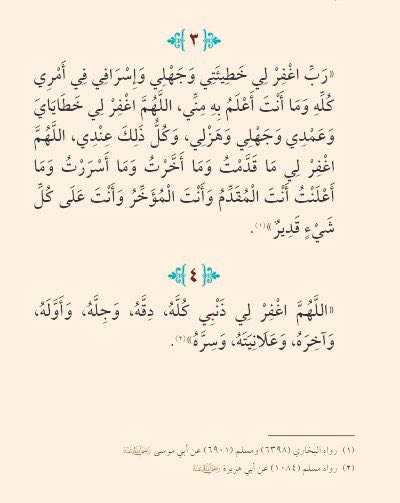 ٣
«رَبِّ اغْفِرْ لِي خَطِيئَتِي وَجَهْلِي وَإِسْرَافِي فِي أَمْرِي
كُلِّهِ وَمَا أَنْتَ أَعْلَمُ بِهِ مِنِّي، اللَّهُمَّ اغْفِرْ لِي خَطَايَايَ
وَعَمْدِي وَجَهْلِي وَهَزْلِي، وَكُلُّ ذَلِكَ عِنْدِي، اللَّهُمَّ
اغْفِرْ لِي مَا قَدَّمْتُ وَمَا أَخَّرْتُ وَمَا أَسْرَرْتُ وَمَا
أَعْلَنْتُ أَنْتَ الْمُقَدِّمُ وَأَنْتَ الْمُؤَخِّرُ وَأَنْتَ عَلَى كُلِّ
شَيْءٍ قَدِيرٌ»(١).
٤
«اللَّهُمَّ اغْفِرْ لِي ذَنْبِي كُلَّهُ، دِقَّهُ، وَجِلَّهُ، وَأَوَّلَهُ،
وَآخِرَهُ، وَعَلَانِيَتَهُ، وَسِرَّهُ»(٢).
(١) رواه البخاري (٦٣٩٨) ومسلم (٦٩٠١) عن أبي موسى رَضِيَ اللَّهُ عَنْهُ
(٢) رواه مسلم (١٠٨٤) عن أبي هريرة رَضِيَ اللَّهُ عَنْهُ